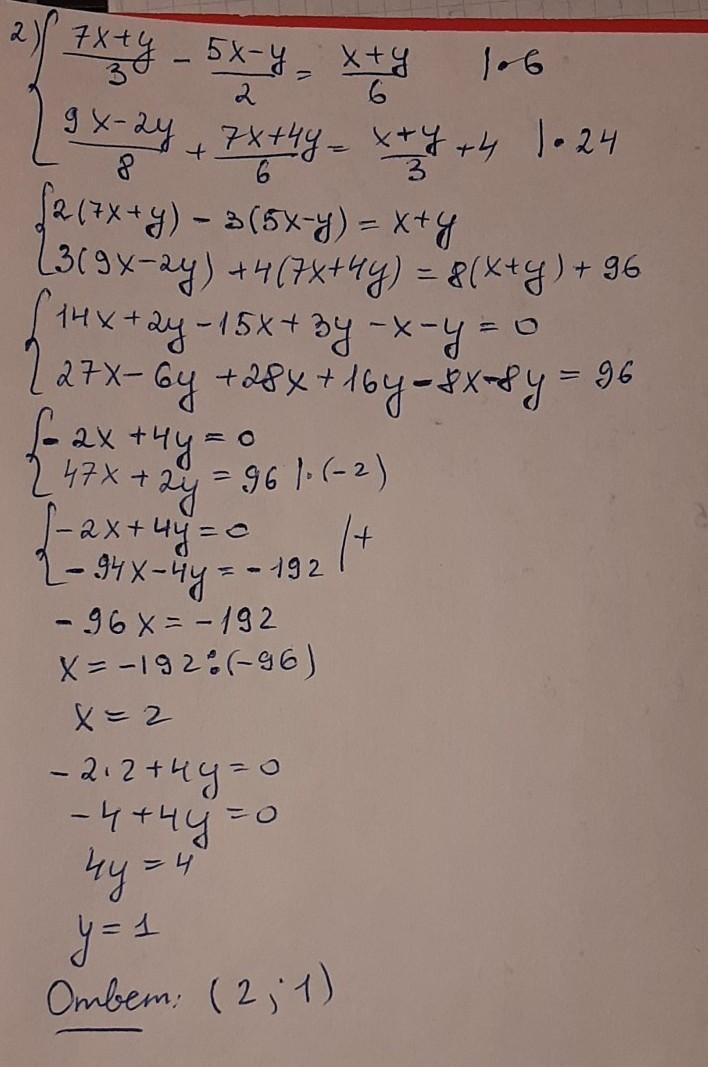 2) { (7x+y)/3 - (5x-y)/2 = (x+y)/6 |·6
(9x-2y)/8 + (7x+4y)/6 = (x+y)/3 + 4 |·24
{ 2(7x+y) - 3(5x-y) = x+y
3(9x-2y) + 4(7x+4y) = 8(x+y) + 96
{ 14x+2y-15x+3y-x-y=0
27x-6y+28x+16y-8x-8y=96
{ -2x+4y=0
47x+2y=96 |·(-2)
{ -2x+4y=0 |+
-94x-4y=-192
-96x=-192
x=-192:(-96)
x=2
-2·2+4y=0
-4+4y=0
4y=4
y=1
Ответ: (2;1)